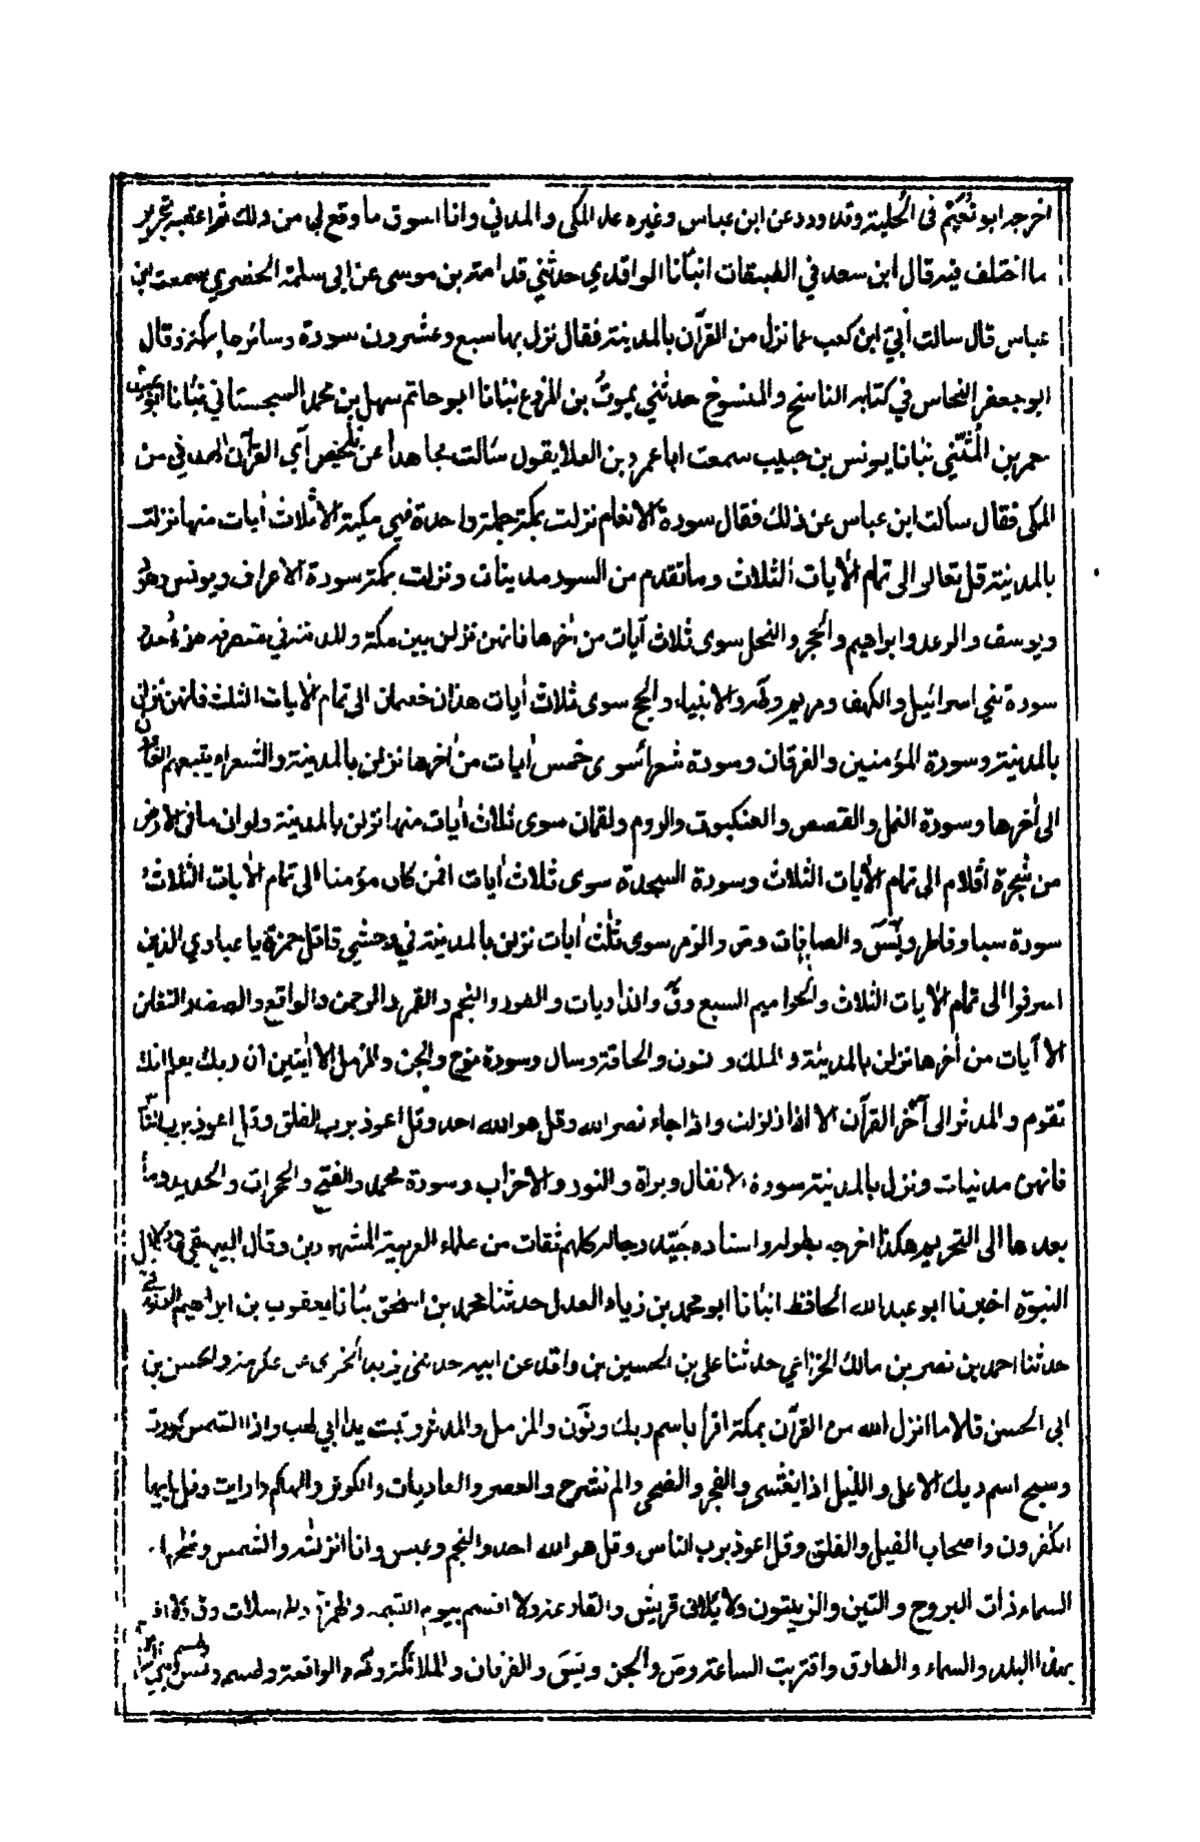 اخرجه ابو نُعَيْم فى الحُلية وقد ورد عن ابن عباس وغيره عد المكى والمدني وانا اسوق ما وقع لى من ذلك ثم اعقبه بتحرير
ما اختلف فيه قال ابن سعد في الطبقات انبأنا الواقدي حدثني قدامة بن موسى عن ابى سلمة الحضرمي سمعت ابن
عباس قال سالت أُبيّ ابن كعب عما نزل من القرآن بالمدينة فقال نزل بها سبع وعشرون سورة وسائرها بمكة وقال
ابو جعفر النحاس في كتابه الناسخ والمنسوخ حدثني يموتُ بن المزرع نبّانا ابو حاتم سهل بن محمد السجستاني نبّانا ابو عبيدة
معمر بن المُثَنّى نبّانا يونس بن حبيب سمعت ابا عمرو بن العلا يقول سألت مجاهداً عن تلخيص آي القرآن المدني من
المكى فقال سألت ابن عباس عن ذلك فقال سورة الانعام نزلت بمكة جملة واحدة فهي مكية الا ثلاث أيات منها نزلت
بالمدينة قل تعالوا الى تمام الأيات الثلاث وما تقدم من السور مدنيات ونزلت بمكة سورة الاعراف ويونس وهود
ويوسف والرعد وابراهيم والحجر والنحل سوى ثلاث آيات من أخرها فانهن نزلن بين مكة والمدينة في منصرفه من أُحد
سورة بني اسرائيل والكهف ومريم وطه والانبياء والحج سوى ثلاث أيات هذان خصمان الى تمام الأيات الثلث فانهن نزلن
بالمدينة وسورة المؤمنين والفرقان وسورة شعرا سوى خمس أيات من أخرها نزلن بالمدينة والشعراء يتبعهم الغاون
الى أخرها وسورة النمل والقصص والعنكبوت والروم ولقمان سوى ثلاث أيات منها نزلن بالمدينة ولو ان ما فى الارض
من شجرة اقلام الى تمام الأيات الثلاث وسورة السجدة سوى ثلاث أيات افمن كان مؤمنا الى تمام الأيات الثلاث
سورة سبا وفاطر ويٰسٓ والصافات وص والزمر سوى ثلث أيات نزلن بالمدينة في وحشي قاتل حمزة يا عبادي الذين
اسرفوا الى تمام الأيات الثلاث والحواميم السبع وقٓ والذاريات والطور والنجم والقمر والرحمن والواقع والصف والتغابن
الا آيات من أخرها نزلن بالمدينة والملك ونون والحاقة وسال وسورة نوح والجن والمزمل الا ايتين ان ربك يعلم انك
تقوم والمدثر الى آخر القرآن الا اذا زلزلت واذا جاء نصر الله وقل هو الله احد وقل اعوذ برب الفلق وقل اعوذ برب الناس
فانهن مدنيات ونزل بالمدينة سورة الانفال وبراة والنور والاحزاب وسورة محمد والفتح والحجرات والحديد وما
بعدها الى التحريم هكذا اخرجه بطوله واسناده جَيّد رجاله كلهم ثقات من علماء العربية المشهورين وقال البيهقي في دلائل
النبوّة اخبرنا ابو عبد الله الحافظ انبأنا ابو محمد بن زياد العدل حدثنا محمد بن اسحق نبّانا يعقوب بن ابراهيم الدورقي
حدثنا احمد بن نصر بن مالك الخزاعي حدثنا على بن الحسين بن واقد عن ابيه حدثنى يزيد النحوى عن عكرمة والحسن بن
ابى الحسن قالا ما انزل الله من القرآن بمكة اقرأ باسم ربك ونٓون والمزمل والمدثر وتبت يدا ابي لهب واذا الشمس كورت
وسبح اسم ربك الاعلى والليل اذا يغشى والفجر والضحى والم نشرح والعصر والعاديات والكوثر والهاكم وارايت وقل يا ايها
الكفرون واصحاب الفيل والفلق وقل اعوذ برب الناس وقل هو الله احد والنجم وعبس وانا انزلنه والشمس وضحها
السماء ذات البروج والتين والزيتون ولايلاف قريش والقارعة ولا اقسم بيوم القيمة والهمزة والمرسلات وق ولا اقسم
بهذا البلد والسماء والطارق واقتربت الساعة وصٓ والجن ويٰسٓ والفرقان والملائكة وطه والواقعة وطسم وطس